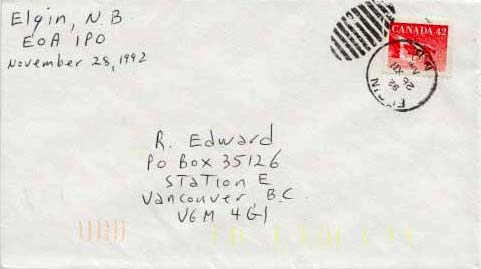 Elgin, N.B.
EOA 1PO
November 28, 1992
CANADA 42
ELGIN
92
R. Edward
PO BOX 35126
STATION E
Vancouver, B.C.
V6M 4G1